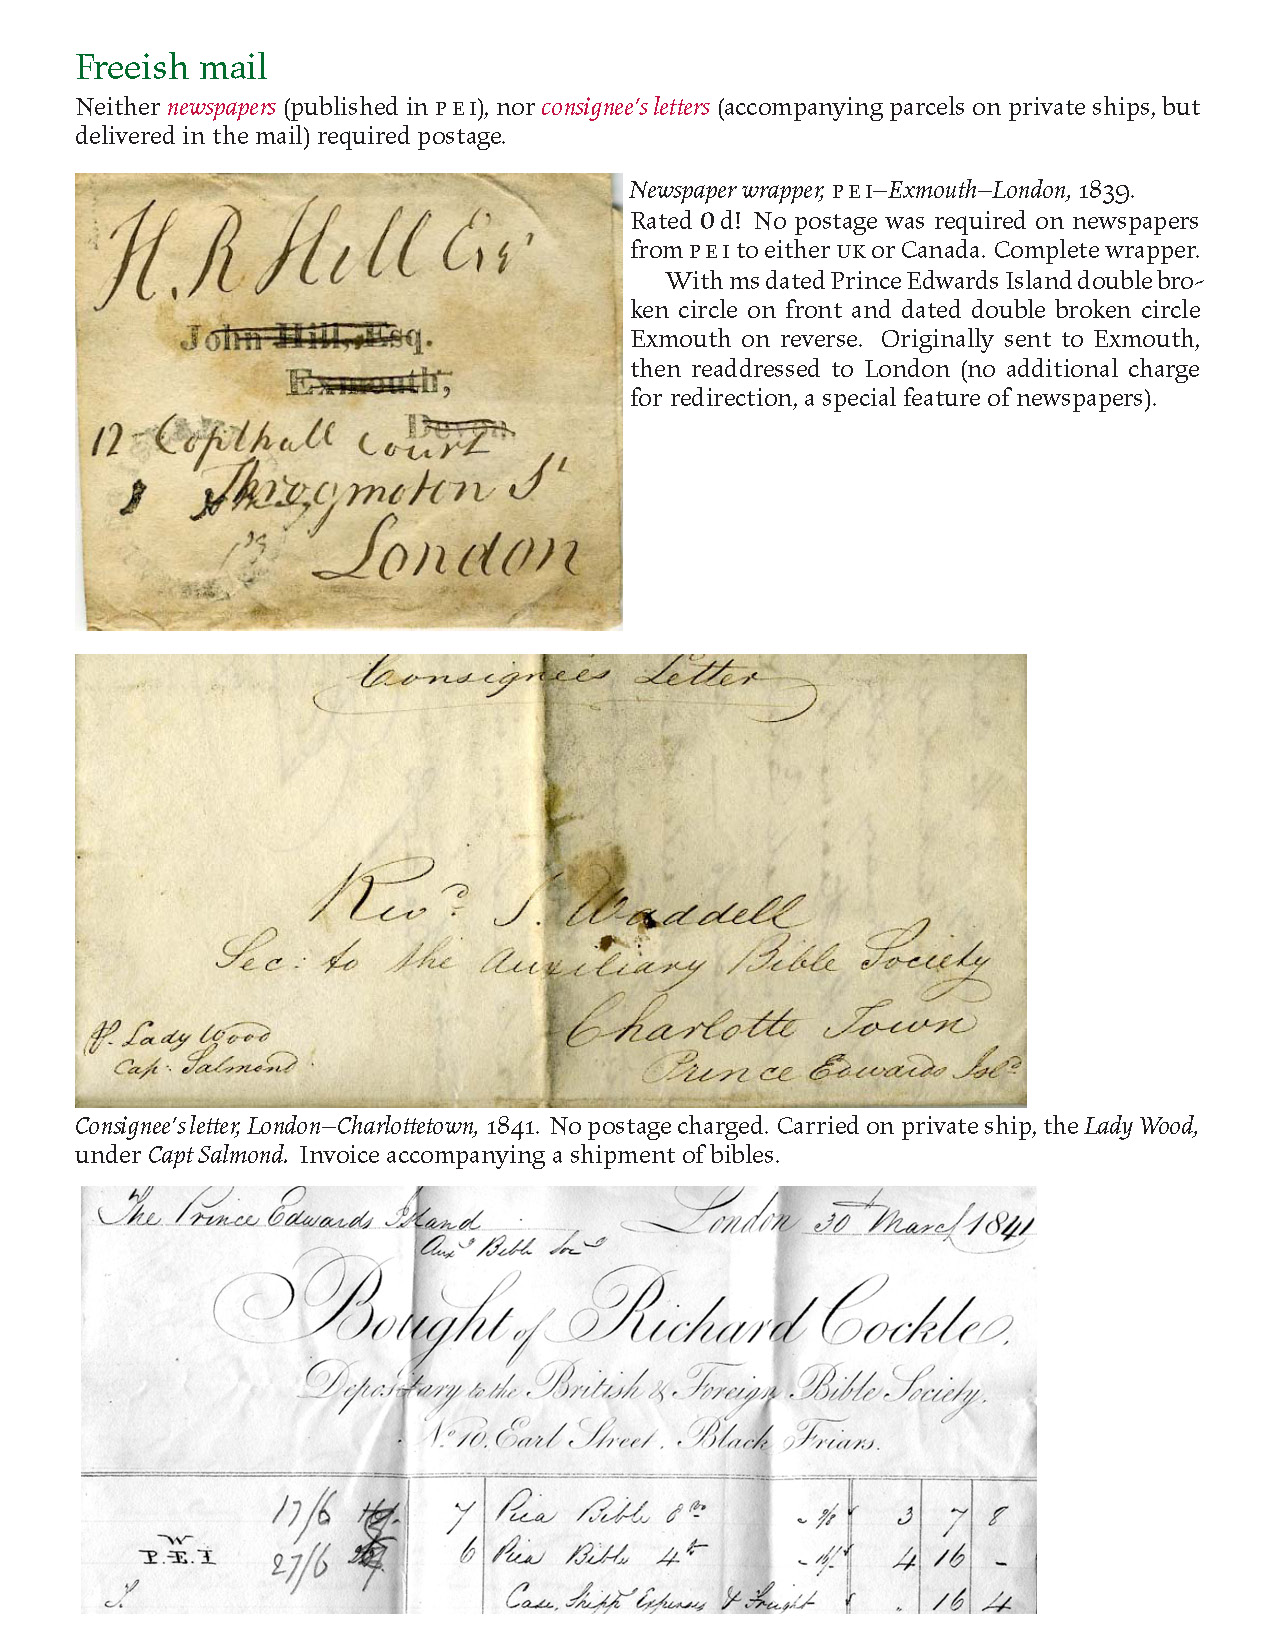 Freeish mail
Neither newspapers (published in P E I), nor consignee's letters (accompanying parcels on private ships, but
delivered in the mail) required postage.
H. R Hill Esqr
John Hill, Esq.
Exmouth,
Devon.
12 Copthall Court
Throgmoton St
London
Newspaper wrapper, P E I–Exmouth–London, 1839.
Rated 0 d! No postage was required on newspapers
from P E I to either UK or Canada. Complete wrapper.
With ms dated Prince Edwards Island double bro-
ken circle on front and dated double broken circle
Exmouth on reverse. Originally sent to Exmouth,
then readdressed to London (no additional charge
for redirection, a special feature of newspapers).
Consignees Letter
Revd. J. Waddell
Sec: to the Auxiliary Bible Society
Charlotte Town
Prince Edwards Isld
P. Lady Wood
Cap: Salmond
Consignee's letter, London–Charlottetown, 1841. No postage charged. Carried on private ship, the Lady Wood,
under Capt Salmond. Invoice accompanying a shipment of bibles.
The Prince Edwards Island London 30th March 1841
Auxy Bible Socy
Bought of Richard Cockle,
Depositary to the British & Foreign Bible Society.
No 10, Earl Street, Black Friars.
17/6 7 Pica Bible 8vo 3 7 8
W
P.E.I 27/6 6 Pica Bible 4to 16/- 4 16 -
Case, Shipps Expenses & Freight 16 4